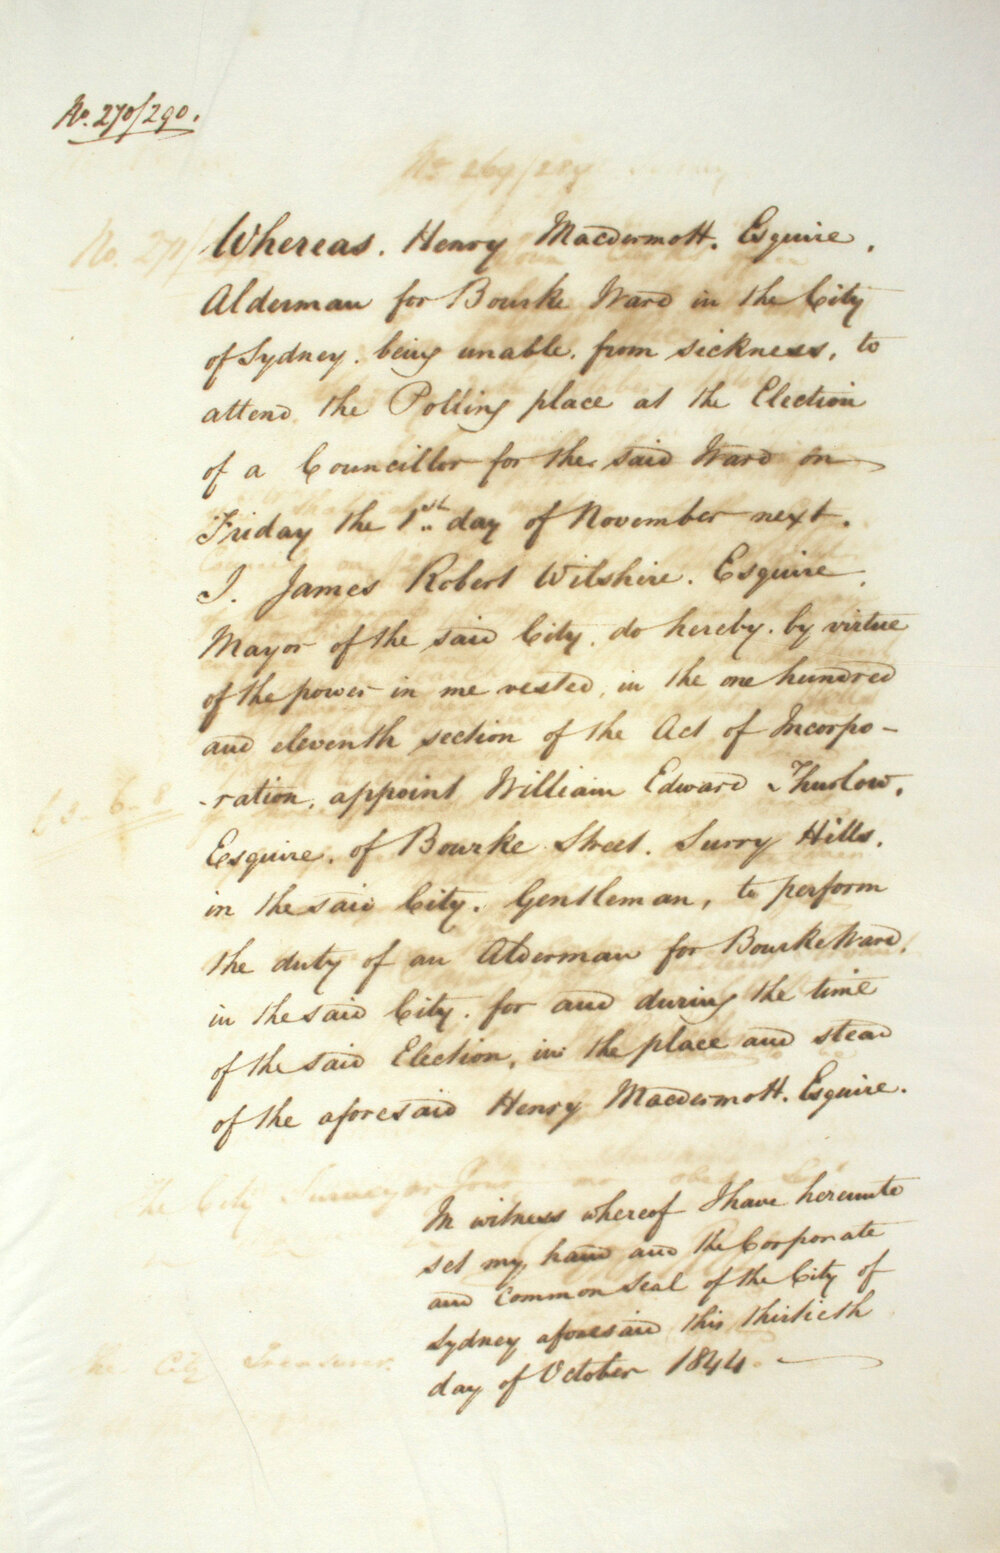 No. 270/290.
Whereas. Henry Macdermott. Esquire.
Alderman for Bourke Ward in the City
of Sydney. being unable. from sickness, to
attend the Polling place at the Election
of a Councillor for the said Ward on
Friday the 1st day of November next.
I. James Robert Wilshire. Esquire.
Mayor of the said City. do hereby. by virtue
of the power in me vested, in the one hundred
and eleventh section of the Act of Incorpo-
-ration, appoint William Edward Thurlow,
Esquire. of Bourke Street. Surry Hills.
in the said City. Gentleman, to perform
the duty of an Alderman for Bourke Ward.
in the said City. for and during the time
of the said Election, in the place and stead
of the aforesaid Henry Macdermott. Esquire.
In witness whereof I have hereunto
set my hand and the Corporate
and Common Seal of the City of
Sydney aforesaid this thirtieth
day of October 1844.